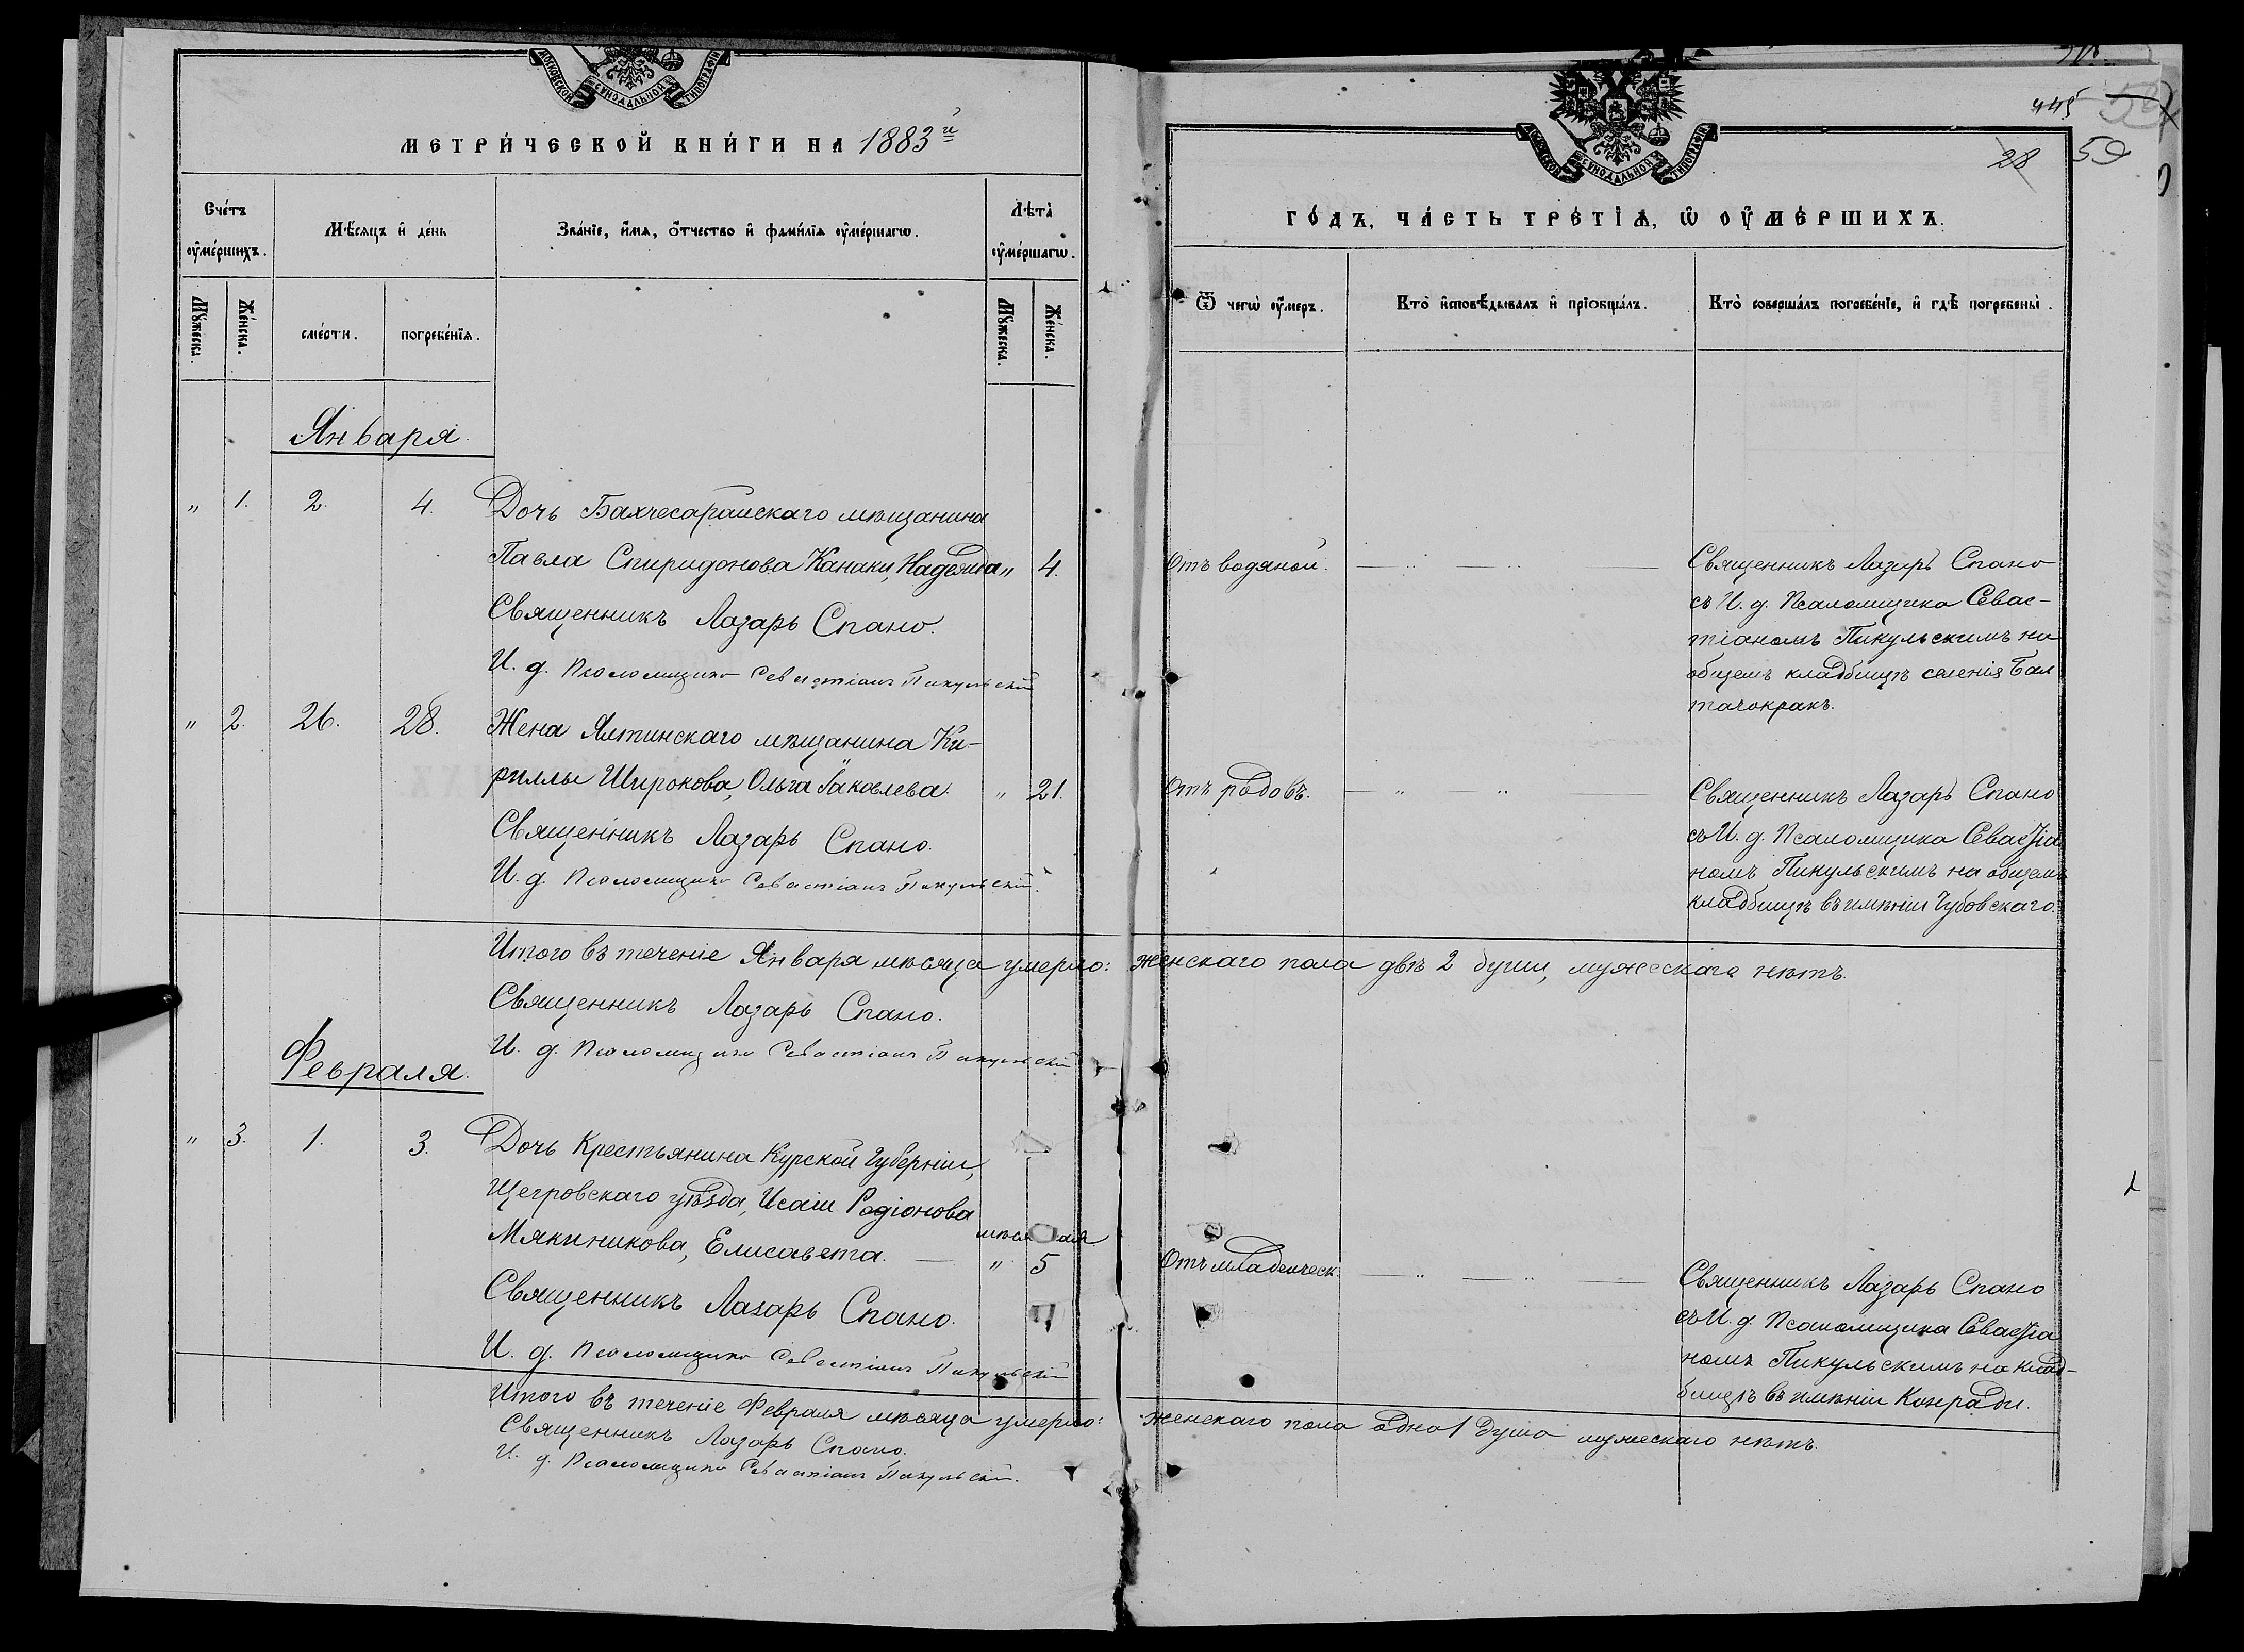 МОСКОВСКОЙ СѴНОДАЛЬНОЙ ТИПОГРАФІИ
МЕТРИ́ЧЕСКОЙ КНИ́ГИ НА 1883й
Сче́тъ ᲂу҆ме́ршихъ.
Мѣ́сяцъ и҆ де́нь
Зва́нїе, и҆́мѧ, ѻ҆́тчество и҆ фами́лїѧ ᲂу҆ме́ршагѡ.
Лѣта̀ ᲂу҆ме́ршагѡ.
Мꙋ́жеска.
Же́нска.
сме́рти.
погребе́нїѧ.
Мꙋ́жеска.
Же́нска.
Января.
" 1. 2. 4. Дочь Бахчесарайскаго мѣщанина
Павла Спиридонова Канаки, Надежда " 4.
Священникъ Лазарь Спано.
И. д. Псаломщика Севастіанъ Пикульскій
" 2. 26. 28. Жена Ялтинскаго мѣщанина Ки-
риллы Широкова, Ольга Іаковлева. " 21.
Священникъ Лазарь Спано.
И. д. Псаломщика Севастіанъ Пикульскій.
Итого въ теченіе Января мѣсяца умерло: женскаго пола двѣ 2 души, мужескаго нѣтъ.
Священникъ Лазарь Спано.
И. д. Псаломщика Севастіанъ Пикульскій
Февраля.
" 3. 1. 3. Дочь Крестьянина Курской Губерніи,
Щегровскаго уѣзда, Исаіи Родіонова
Мякинникова, Елисавета. —
" 5
Священникъ Лазарь Спано.
И. д. Псаломщика Севастіанъ Пикульскій
Итого въ теченіе Февраля мѣсяца умерло: женскаго пола одна 1 душа мужескаго нѣтъ.
Священникъ Лазарь Спано.
И. д. Псаломщика Севастіанъ Пикульскій.
445
28
59
МОСКОВСКОЙ СѴНОДАЛЬНОЙ ТИПОГРАФІИ
ГО́ДЪ, ЧА́СТЬ ТРЕ́ТЇѦ, Ѡ҆ ОУ҆МЕ́РШИХЪ.
Ѿ чегѡ̀ ᲂу҆́меръ.
Кто̀ и҆сповѣ́дывалъ и҆ прїѻбща́лъ.
Кто̀ соверша́лъ погребе́нїе, и҆ гдѣ̀ погребены̀.
Отъ водяной.
Священникъ Лазарь Спано
съ И. д. Псаломщика Севас-
тіаномъ Пикульскимъ на
общемъ кладбищѣ селенія Бал
тачокракъ.
Отъ родовъ.
Священникъ Лазарь Спано
съ И. д. Псаломщика Севастіа
номъ Пикульскимъ на общемъ
кладбищѣ въ имѣніи Чубовскаго.
Отъ младенческ.
Священникъ Лазарь Спано
съ И. д. Псаломщика Севастіа
номъ Пикульскимъ на клад-
бищѣ въ имѣніи Конради.